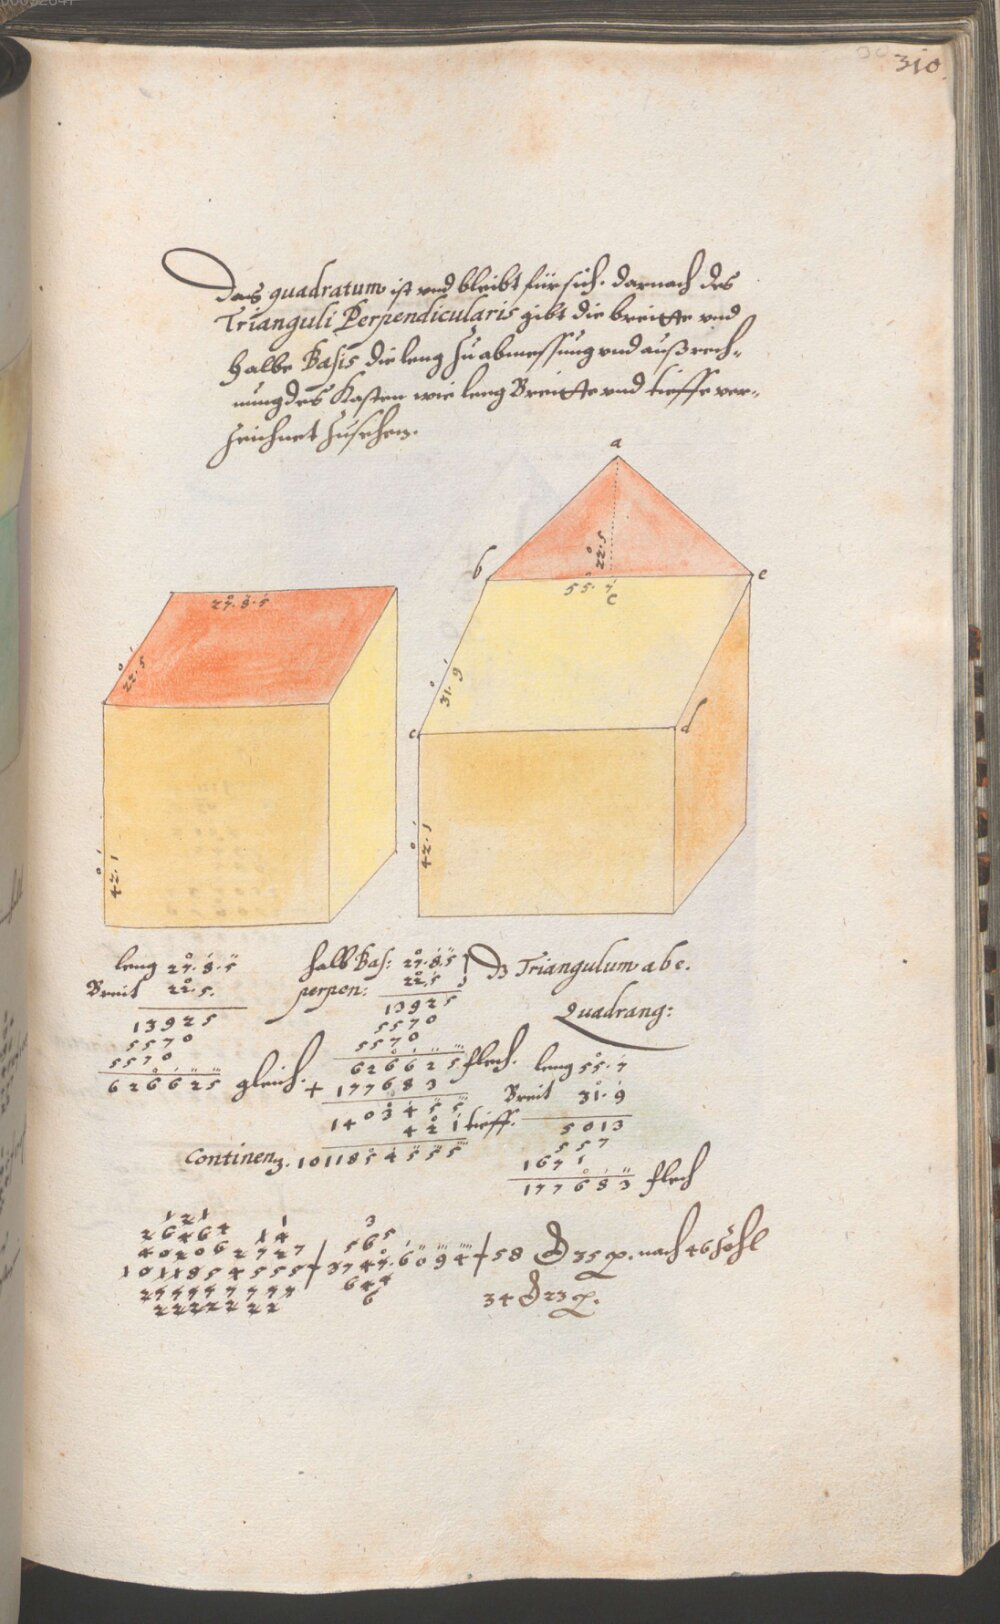 310
Das quadratum ist vnd bleibt für sich. darnach des
Trianguli Perpendicularis gibt die breitte vnd
halbe Basis die leng zu abmessung vnd außrech-
nung des Kasten wie leng Breitte vnd tieffe ver-
zeichnet zusehen.
a
22.5
b
e
55.7
c
27.8.5
22.5
31.9
c
d
42.1
42.1
leng 27.8.5
Breit 22.5.
13925
5570
5570
626625 gleich.
halb Bas: 27.8.5
perpen: 22.5
13925
5570
5570
626625 flech.
+ 177683
1403455
421 tieff.
Continenz. 1011854555
Triangulum abe.
Quadrang:
leng 55.7
Breit 31.9
5013
557
1671
177683 flech
58 35 nach 46
34 23